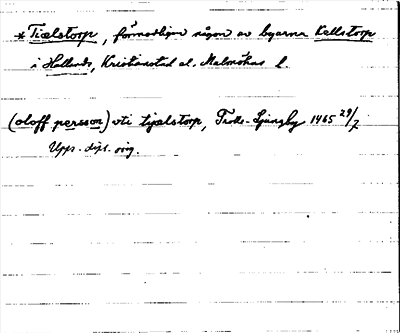 * Tiælstorp, förmodligen någon av byarna Källstorp
i Hallands, Kristianstad el. Malmöhus l.
(oloff persson) vti tiælstorp, Trolle-Ljungby 1465 29/7
Upps. dipl. orig.